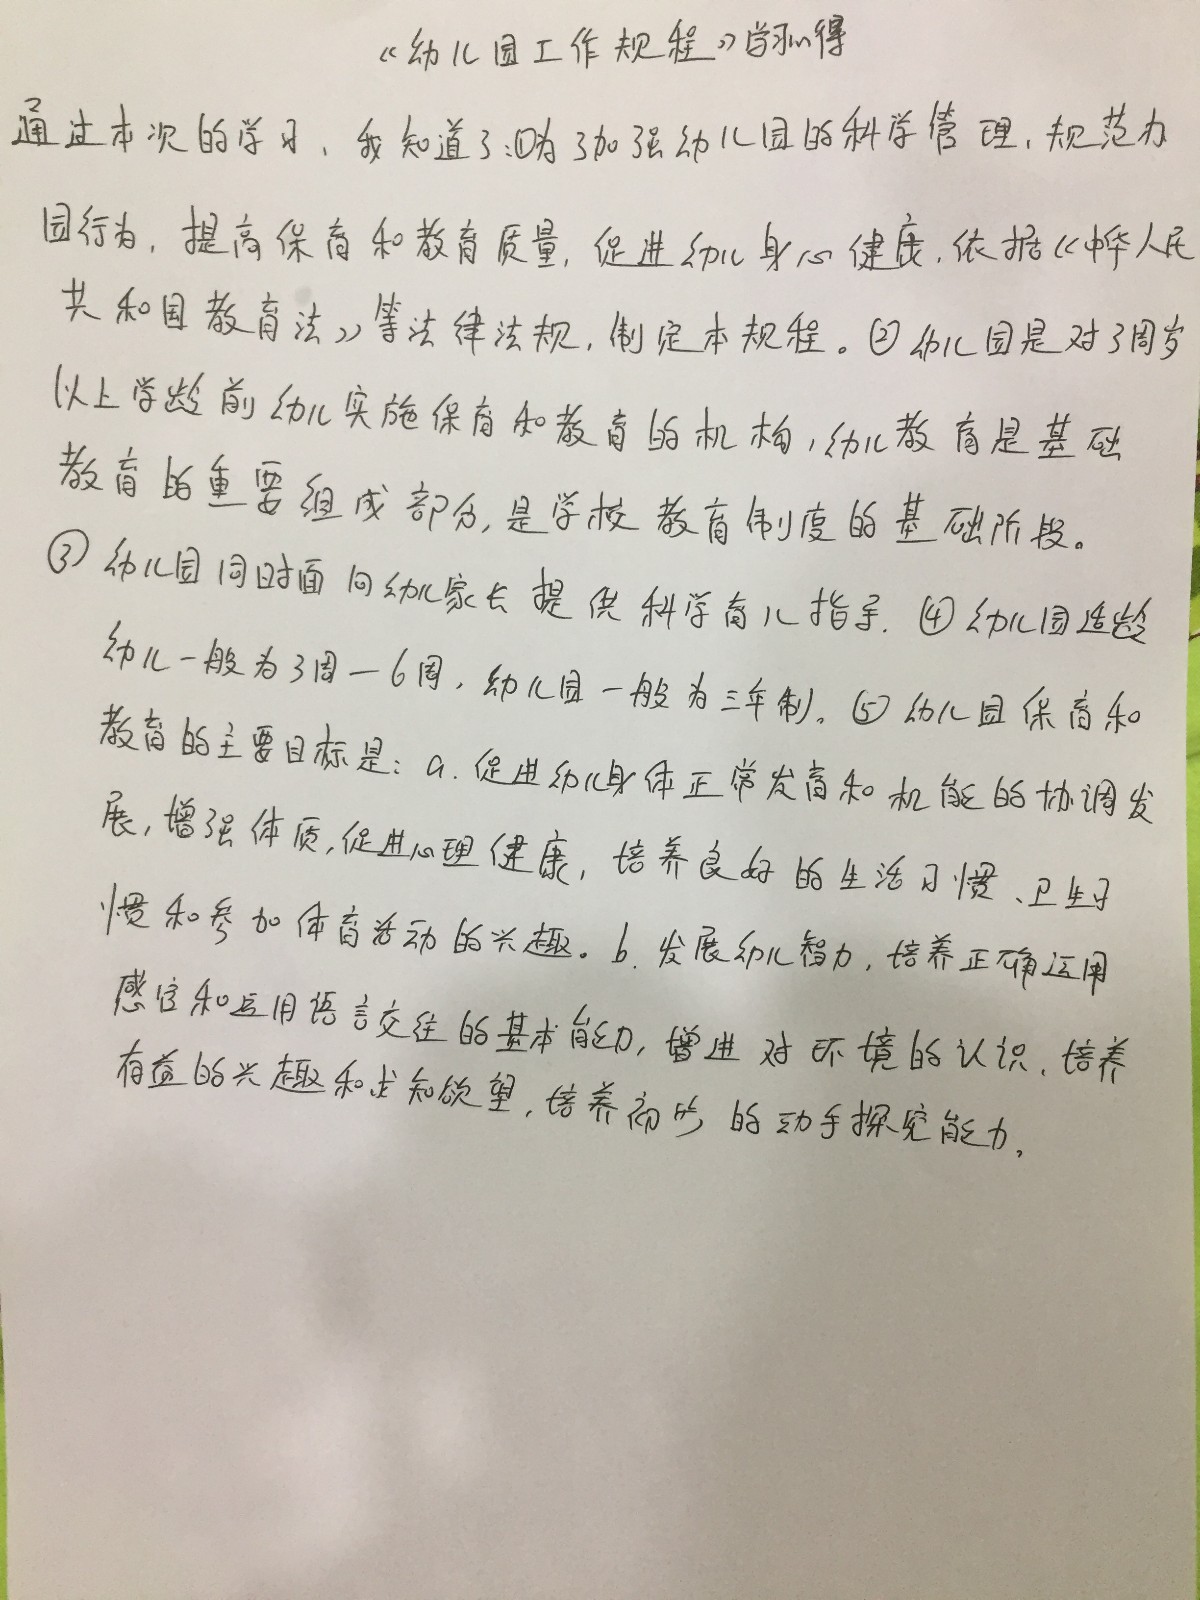 《幼儿园工作规程》学习心得
通过本次的学习，我知道了：①为了加强幼儿园的科学管理，规范办
园行为，提高保育和教育质量，促进幼儿身心健康，依据《中华人民
共和国教育法》等法律法规，制定本规程。②幼儿园是对3周岁
以上学龄前幼儿实施保育和教育的机构，幼儿教育是基础
教育的重要组成部分，是学校教育制度的基础阶段。
③幼儿园同时面向幼儿家长提供科学育儿指导。④幼儿园适龄
幼儿一般为3周—6周，幼儿园一般为三年制。⑤幼儿园保育和
教育的主要目标是：a.促进幼儿身体正常发育和机能的协调发
展，增强体质，促进心理健康，培养良好的生活习惯、卫生习
惯和参加体育活动的兴趣。b.发展幼儿智力，培养正确运用
感官和运用语言交往的基本能力，增进对环境的认识，培养
有益的兴趣和求知欲望，培养初步的动手探究能力。